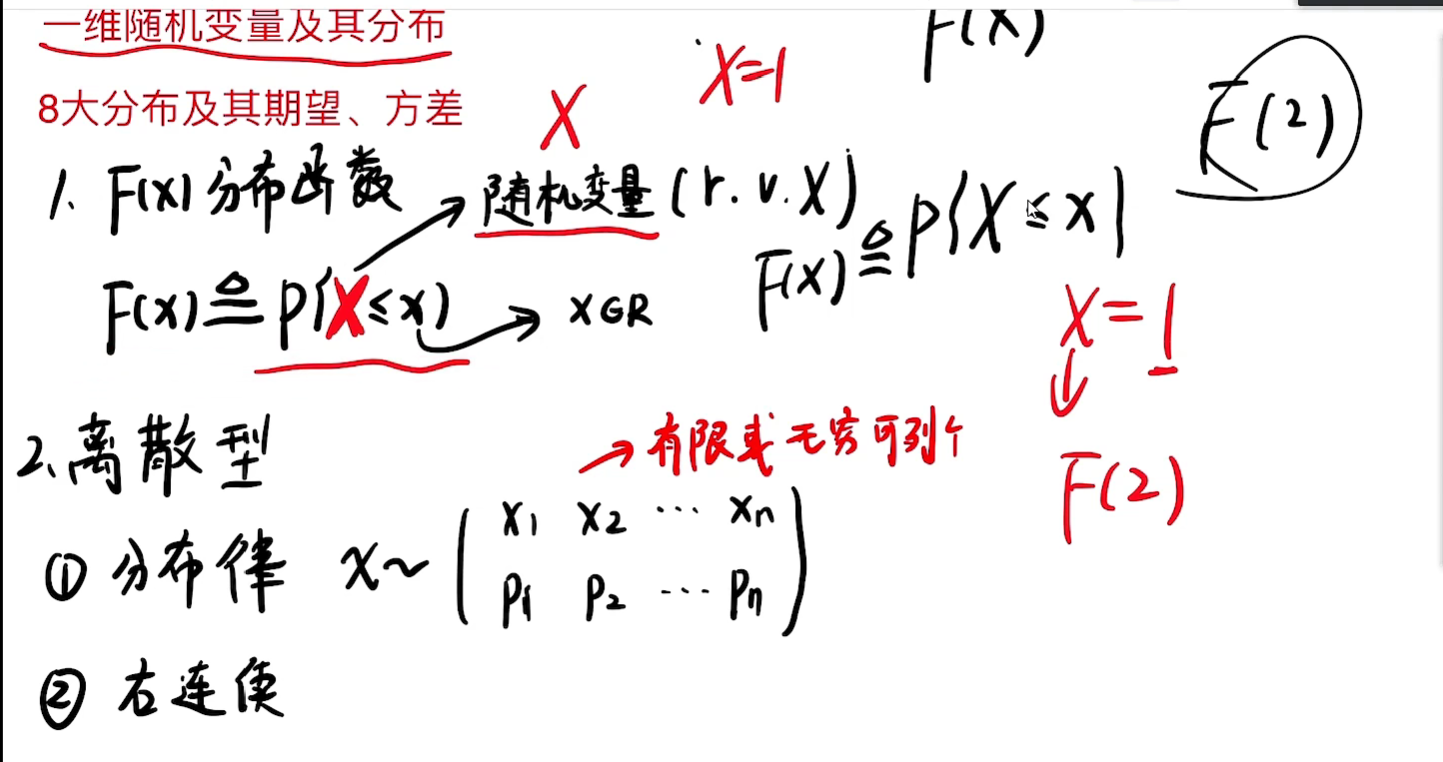 一维随机变量及其分布
F(x)
X=1
8大分布及其期望、方差
X
F(2)
1. F(x)分布函数
随机变量(r.v.X)
F(x)≜P{X≤x}
F(x)≜P{X≤x}
x∈R
X=1
F(2)
2、离散型
→有限或无穷可列个
① 分布律 X~
x1 x2 … xn
p1 p2 … pn
② 右连续